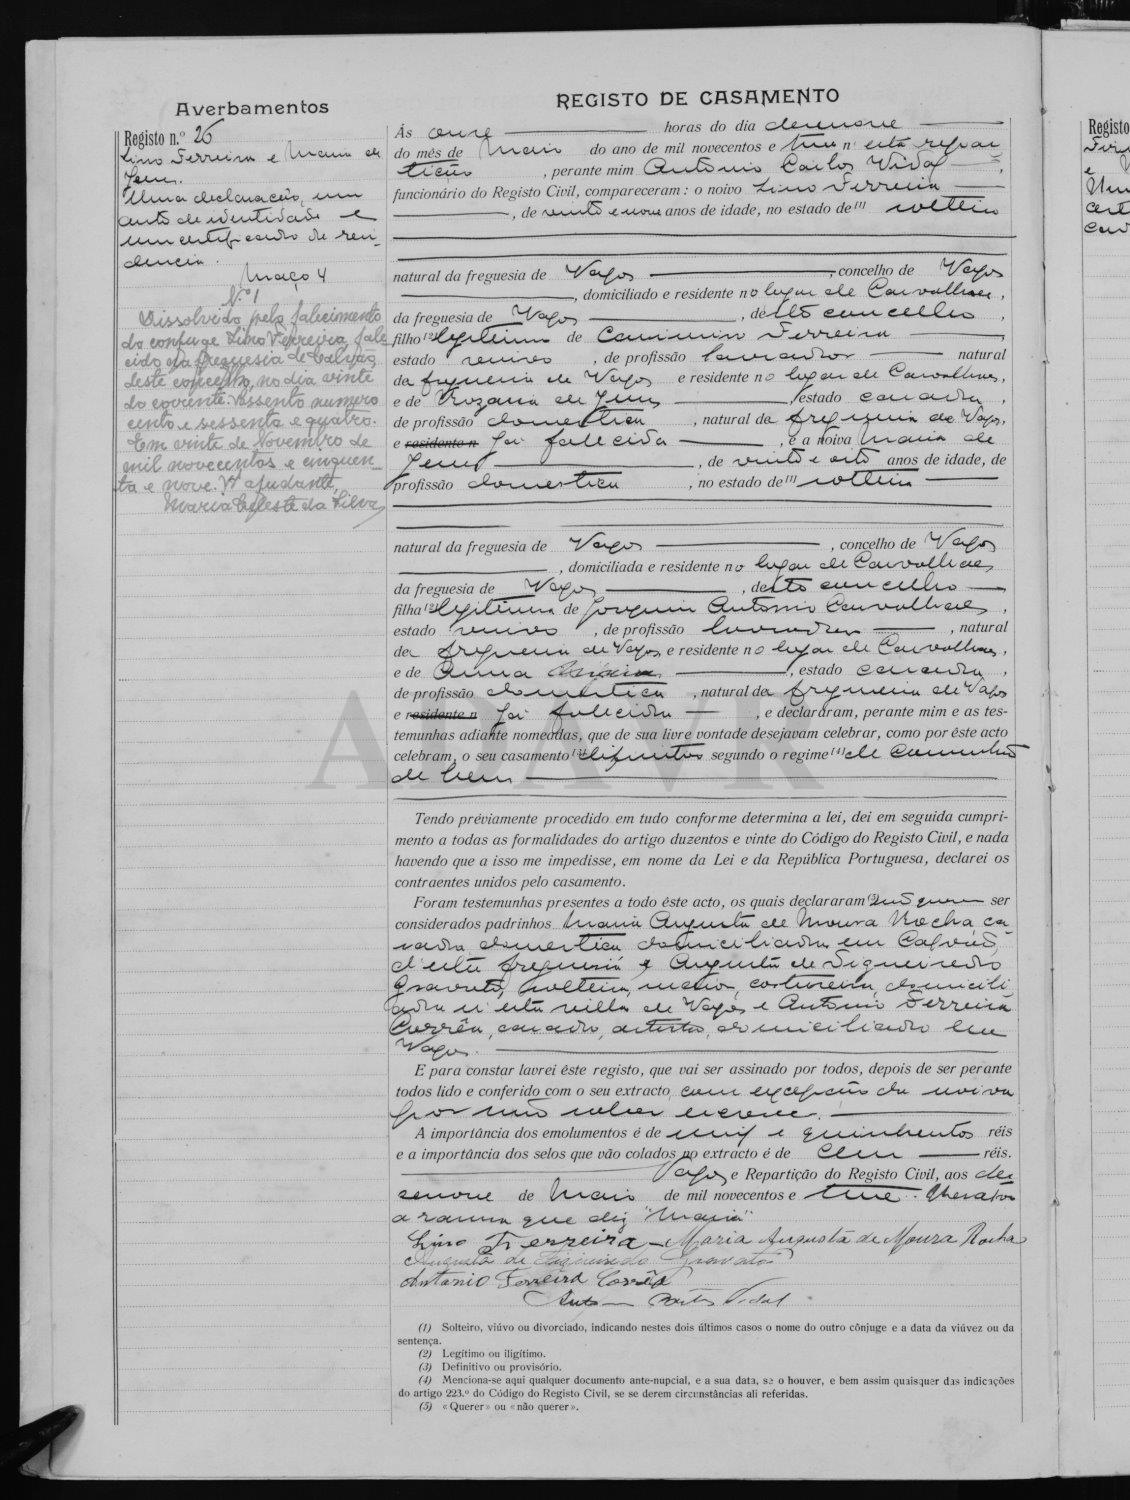 Averbamentos
Registo n.º 26
Lino Ferreira e Maria de
Jesus.
Uma declaração, um
auto de identidade e
um certificado de resi-
dencia.
Maço 4
N.º 1
Dissolvido pelo falecimento
do conjuge Lino Ferreira, fale-
cido na freguesia de Calvão,
deste concelho, no dia vinte
do corrente. Assento numero
cento e sessenta e quatro.
Em vinte de Novembro de
mil novecentos e cinquen-
ta e nove. A ajudante,
Maria Celeste da Silva
REGISTO DE CASAMENTO
Ás onze horas do dia dezenove
do mês de Maio do ano de mil novecentos e treze n'esta repar
tição, perante mim Antonio Carlos Vidal,
funcionário do Registo Civil, compareceram: o noivo Lino Ferreira
, de vinte e nove anos de idade, no estado de (1) solteiro
natural da freguesia de Vagos, concelho de Vagos
, domiciliado e residente no lugar de Carvalhaes,
da freguesia de Vagos, deste concelho,
filho (2) legitimo de Ferreira
estado viuvo, de profissão lavrador natural
da freguesia de Vagos e residente no lugar de Carvalhaes,
e de Rozaria de Jesus, estado casada,
de profissão domestica, natural da freguesia de Vagos,
e residente n já falecida, e a noiva Maria de
Jesus, de vinte e oito anos de idade, de
profissão domestica, no estado de (1) solteira
natural da freguesia de Vagos, concelho de Vagos
, domiciliada e residente no lugar de Carvalhaes
da freguesia de Vagos, deste concelho
filha (2) legitima de Joaquim Antonio Carvalhaes,
estado viuvo, de profissão lavrador, natural
da freguesia de Vagos, e residente no lugar de Carvalhaes,
e de Anna, estado casada,
de profissão domestica, natural da freguesia de Vagos
e residente n já falecida, e declararam, perante mim e as tes-
temunhas adiante nomeadas, que de sua livre vontade desejavam celebrar, como por êste acto
celebram, o seu casamento (3) difinitivo segundo o regime (4) de comunhão
de bens
Tendo préviamente procedido em tudo conforme determina a lei, dei em seguida cumpri-
mento a todas as formalidades do artigo duzentos e vinte do Código do Registo Civil, e nada
havendo que a isso me impedisse, em nome da Lei e da República Portuguesa, declarei os
contraentes unidos pelo casamento.
Foram testemunhas presentes a todo êste acto, os quais declararam (5) não querer ser
considerados padrinhos Maria Augusta de Moura Rocha, ca-
sada, domestica, domiciliada em Calvão,
d'esta freguesia e Augusta de Figueiredo
Gravato, solteira, maior, costureira, domicili-
ada n'esta villa de Vagos e Antonio Ferreira
Corrêa, casado, artista, domiciliado em
Vagos.
E para constar lavrei êste registo, que vai ser assinado por todos, depois de ser perante
todos lido e conferido com o seu extracto, com excepção da noiva
por não saber escrever.
A importância dos emolumentos é de mil e quinhentos réis
e a importância dos selos que vão colados no extracto é de cem réis.
Vagos e Repartição do Registo Civil, aos de-
senove de Maio de mil novecentos e treze.
a rasura que diz "Maria"
Lino Ferreira – Maria Augusta de Moura Rocha
Augusta de Figueiredo Gravato
Antonio Ferreira Corrêa
Antonio Carlos Vidal
(1) Solteiro, viúvo ou divorciado, indicando nestes dois últimos casos o nome do outro cônjuge e a data da viúvez ou da
sentença.
(2) Legítimo ou iligítimo.
(3) Definitivo ou provisório.
(4) Menciona-se aqui qualquer documento ante-nupcial, e a sua data, se o houver, e bem assim quaisquer das indicações
do artigo 223.º do Código do Registo Civil, se se derem circunstâncias ali referidas.
(5) «Querer» ou «não querer».
ADAVR
Registo